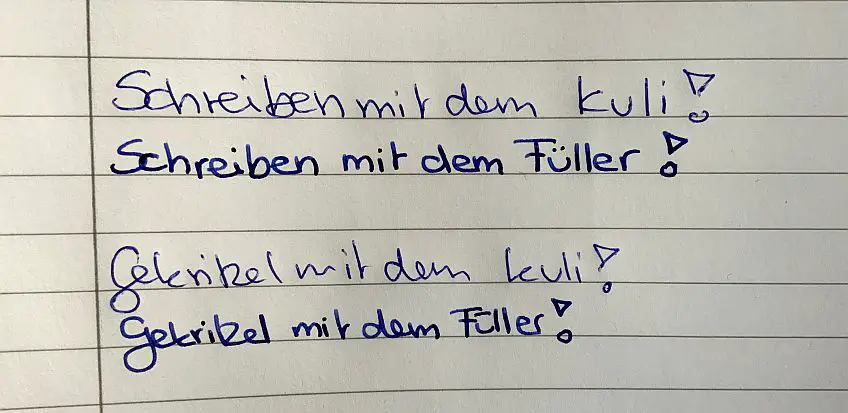 Schreiben mit dem Kuli!
Schreiben mit dem Füller!
Gekrikel mit dem Kuli!
Gekrikel mit dem Füller!